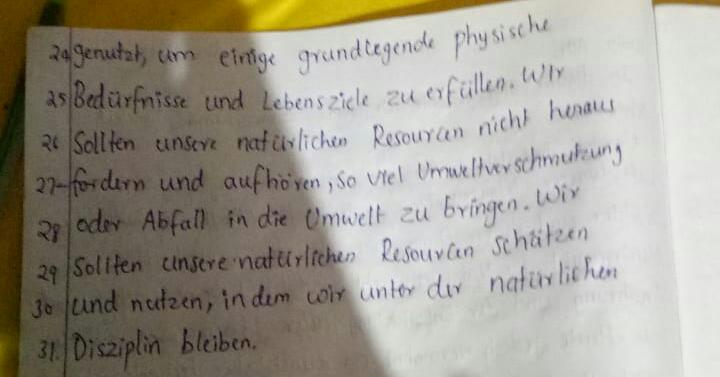 24 genutzt, um einige grundlegende physische
25 Bedürfnisse und Lebensziele zu erfüllen. Wir
26 Sollten unsere natürlichen Resourcen nicht heraus
27- fordern und aufhören, so viel Umweltverschmutzung
28 oder Abfall in die Umwelt zu bringen. Wir
29 Sollten unsere natürlichen Resourcen schätzen
30 und nutzen, in dem wir unter der natürlichen
31. Disziplin bleiben.